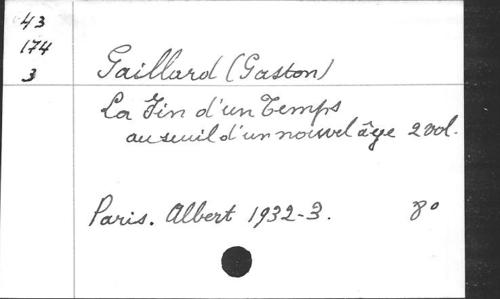 43
174
3
Gaillard (Gaston)
La Fin d'un Temps
au seuil d'un nouvel âge 2 vol.
Paris. Albert 1932-3. 8°